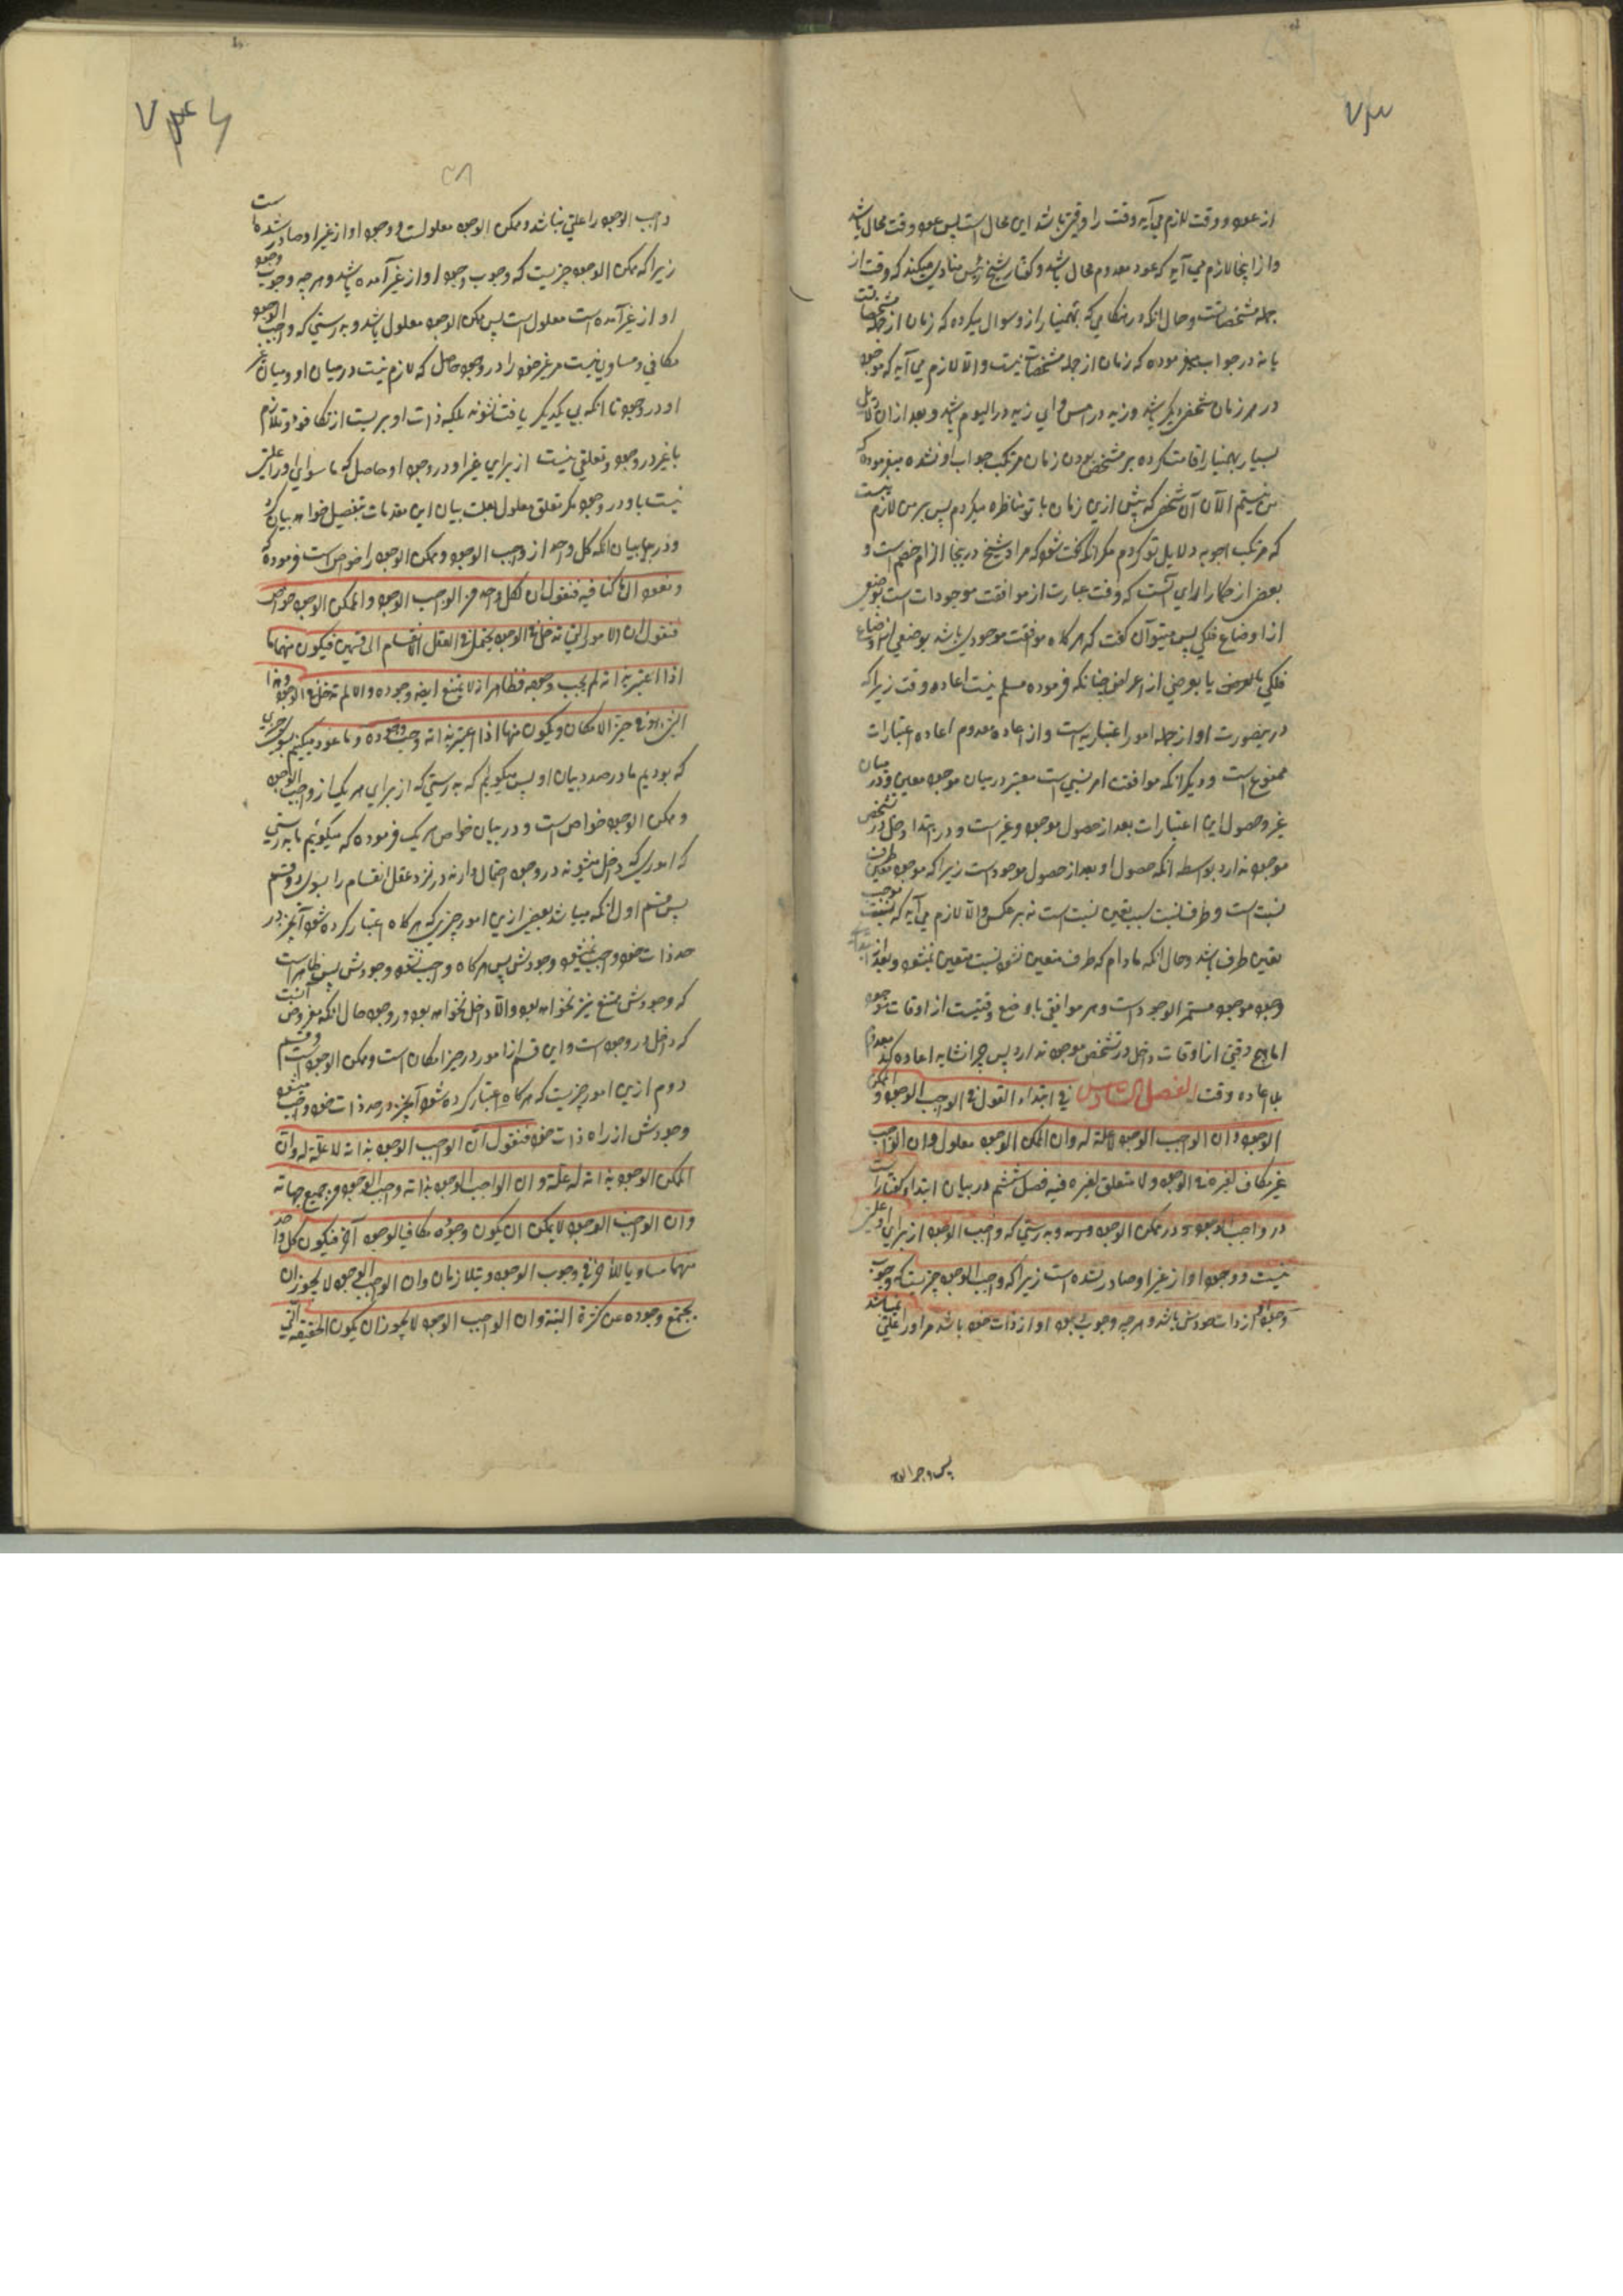 ۷۳
از عود وقت لازم می آید وقت را وقتی باشد این محال است پس عود وقت محال باشد
و از اینجا لازم می آید که عود معدوم محال باشد و گفتار شیخ رئیس منادی میکند که وقت از
جمله مشخصات است و حال انکه در هنگامی که بهمنیار از و سوال میکرده که زمان از جمله مشخصات
یا نه در جواب میفرموده که زمان از جمله مشخصات نیست و الا لازم می آید که موجود
در هر زمان شخص دیگر باشد و زید در امس و ای زید در الیوم باشد و بعد از ان دلایل
بسیار بهمنیار اقامت کرده بر مشخص بودن زمان مرتکب جواب او نشده میفرموده که
من نیستم الآن آن شخص که پیش ازین زمان با تو مناظره میکردم پس بر من لازم نیست
که مرتکب اجوبه دلایل تو کردم مگر انکه گفت شود که مراد شیخ در ینجا الزام خصم است و
بعضی از حکما را رای آنست که وقت عبارت از موافقت موجودات است بوضعی
از اوضاع فلکی پس میتوان گفت که هر گاه موافقت موجودی باشد بوضعی از اوضاع
فلکی یا بعرضی از اعراض چنانکه فرموده مسلم نیست اعاده وقت زیرا که
درینصورت او از جمله امور اعتباریه است و از اعاده معدوم اعاده اعتبارات
ممنوع است و دیگر انکه موافقت امر نسبی است معتبر در میان موجود معین و در میان
غیر و حصول این اعتبارات بعد از حصول موجود و غیر است و در ابتدا دخل در تشخص
موجود ندارد بواسطه انکه حصول او بعد از حصول موجود است زیرا که موجود معین طرف
نسبت است و طرف نسبت سبب تعین نسبت است نه بر عکس و الا لازم می آید که نسبت موجب
تعین طرف باشد و حال انکه مادام که طرف متعین نشود نسبت متعین نمیشود و بعد از
وجود موجود مستمر الوجود است و هر موافقی با وضع وقتیست از اوقات موجود
اما هیچ وقتی از اوقات دخل در تشخص موجود ندارد پس چرا نشاید اعاده کند معدوم
بلا اعاده وقت الفصل السادس فی ابتداء القول فی الواجب الوجود و الممکن
الوجود و ان الواجب الوجود لا علة له و ان الممکن الوجود معلول و ان الواجب
غیر مکاف لغیره فی الوجود و لا متعلق بغیره فیه فصل ششم در بیان ابتداء گفتار است
در واجب الوجود و در ممکن الوجود و بدرستی که واجب الوجود از برای او علتی
نیست و وجود او از غیر او صادر نشده است زیرا که واجب الوجود چیزیست که وجوب
وجود او از ذات خودش باشد و هر چه وجوب وجود او از ذات خود باشد مر او را علتی نمیباشد
پس واجب الوجود
۷۴
واجب الوجود را علتی نباشد و ممکن الوجود معلولست و وجود او از غیر او صادر شده است
زیرا که ممکن الوجود چیزیست که وجوب وجود او از غیر آمده باشد و هر چه وجوب وجود
او از غیر آمده است معلول است پس ممکن الوجود معلول باشد و بدرستی که واجب الوجود
مکافی و مساوی نیست مر غیر خود را در وجود حاصل که لازم نیست در میان او و میان غیر
او در وجود تا انکه بی یکدیگر یافت نشوند بلکه ذات او بریست از تکافو و تلازم
با غیر در وجود و تعلقی نیست از برای غیر او در وجود او حاصل که ما سوای او را علتی
نیست باو در وجود مگر تعلق معلول بعلت بیان این مقدمات بتفصیل خواهد بیان کرد
و در بیان انکه کل واحد از واجب الوجود و ممکن الوجود را خواص است فرموده که
و نعود الی ما کنا فیه فنقول ان لکل واحد من الواجب الوجود و الممکن الوجود خواص
فنقول ان الامور التی تدخل فی الوجود یحتمل فی العقل الانقسام الی قسمین فیکون منها ما
اذا اعتبر بذاته لم یجب وجوده فظاهر انه لا یمتنع ایضا وجوده و الا لم تدخل فی الوجود و هذا
الشیء هو فی حیز الامکان و یکون منها ما اذا اعتبر بذاته وجب وجوده و ما عود میکنیم بسوی چیزی
که بودیم ما در صدد بیان او پس میگویم که بدرستی که از برای هر یکی از واجب الوجود
و ممکن الوجود خواص است و در بیان خواص هر یک فرموده که میگوئیم ما بدرستی
که اموری که داخل میشوند در وجود احتمال دارند در نزد عقل انقسام را بسوی دو قسم
پس قسم اول انکه میباشد بعضی ازین امور چیزی که هر گاه اعتبار کرده شود آنچیز در
حد ذات خود واجب نمیشود وجودش پس هر گاه واجب نشود وجودش پس ظاهر است
که وجودش ممتنع نیز نخواهد بود و الا داخل نخواهد بود در وجود حال انکه مفروض آنست
که داخل در وجود است و این قسم از امور در حیز امکان است و ممکن الوجود است و قسم
دوم ازین امور چیزیست که هر گاه اعتبار کرده شود آنچیز در حد ذات خود واجب میشود
وجودش از راه ذات خود فنقول ان الواجب الوجود بذاته لا علة له و ان
الممکن الوجود بذاته له علة و ان الواجب الوجود بذاته واجب الوجود من جمیع جهاته
و ان الواجب الوجود لا یمکن ان یکون وجوده مکافیا لوجود آخر فیکون کل واحد
منهما مساویا للآخر فی وجوب الوجود و یتلازمان و ان الواجب الوجود لا یجوز ان
یجتمع وجوده عن کثرة البتة و ان الواجب الوجود لا یجوز ان یکون الحقیقة التی